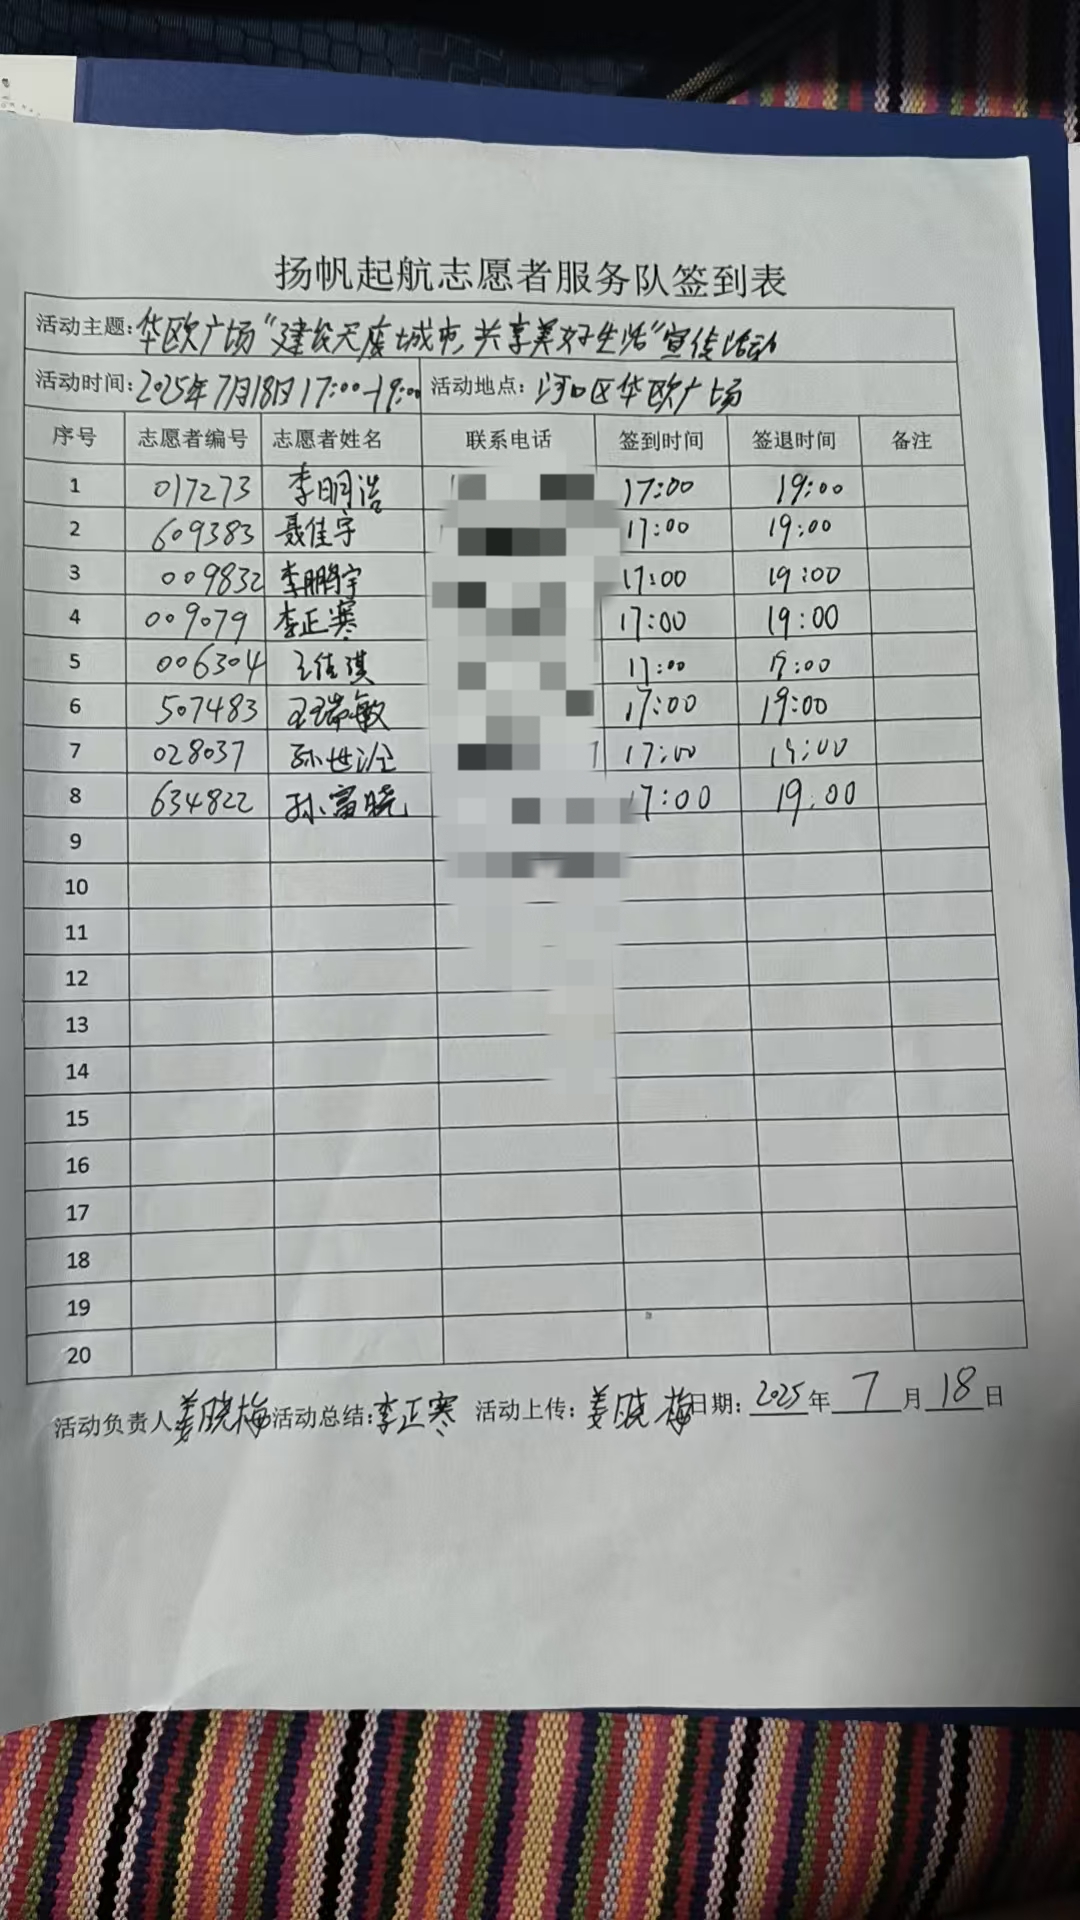 扬帆起航志愿者服务队签到表
活动主题:华欧广场“建设无废城市,共享美好生活”宣传活动
活动时间:2025年7月18日17:00-19:00 活动地点:河口区华欧广场
序号 志愿者编号 志愿者姓名 联系电话 签到时间 签退时间 备注
1 017273 李明浩 17:00 19:00
2 609383 聂佳宇 17:00 19:00
3 009832 李鹏宇 17:00 19:00
4 009079 李正寒 17:00 19:00
5 006304 王佳淇 17:00 19:00
6 507483 王瑞敏 17:00 19:00
7 028037 孙世 17:00 19:00
8 634822 孙富晓 17:00 19:00
9
10
11
12
13
14
15
16
17
18
19
20
活动负责人姜晓梅 活动总结:李正寒 活动上传:姜晓梅 日期:2025年7月18日